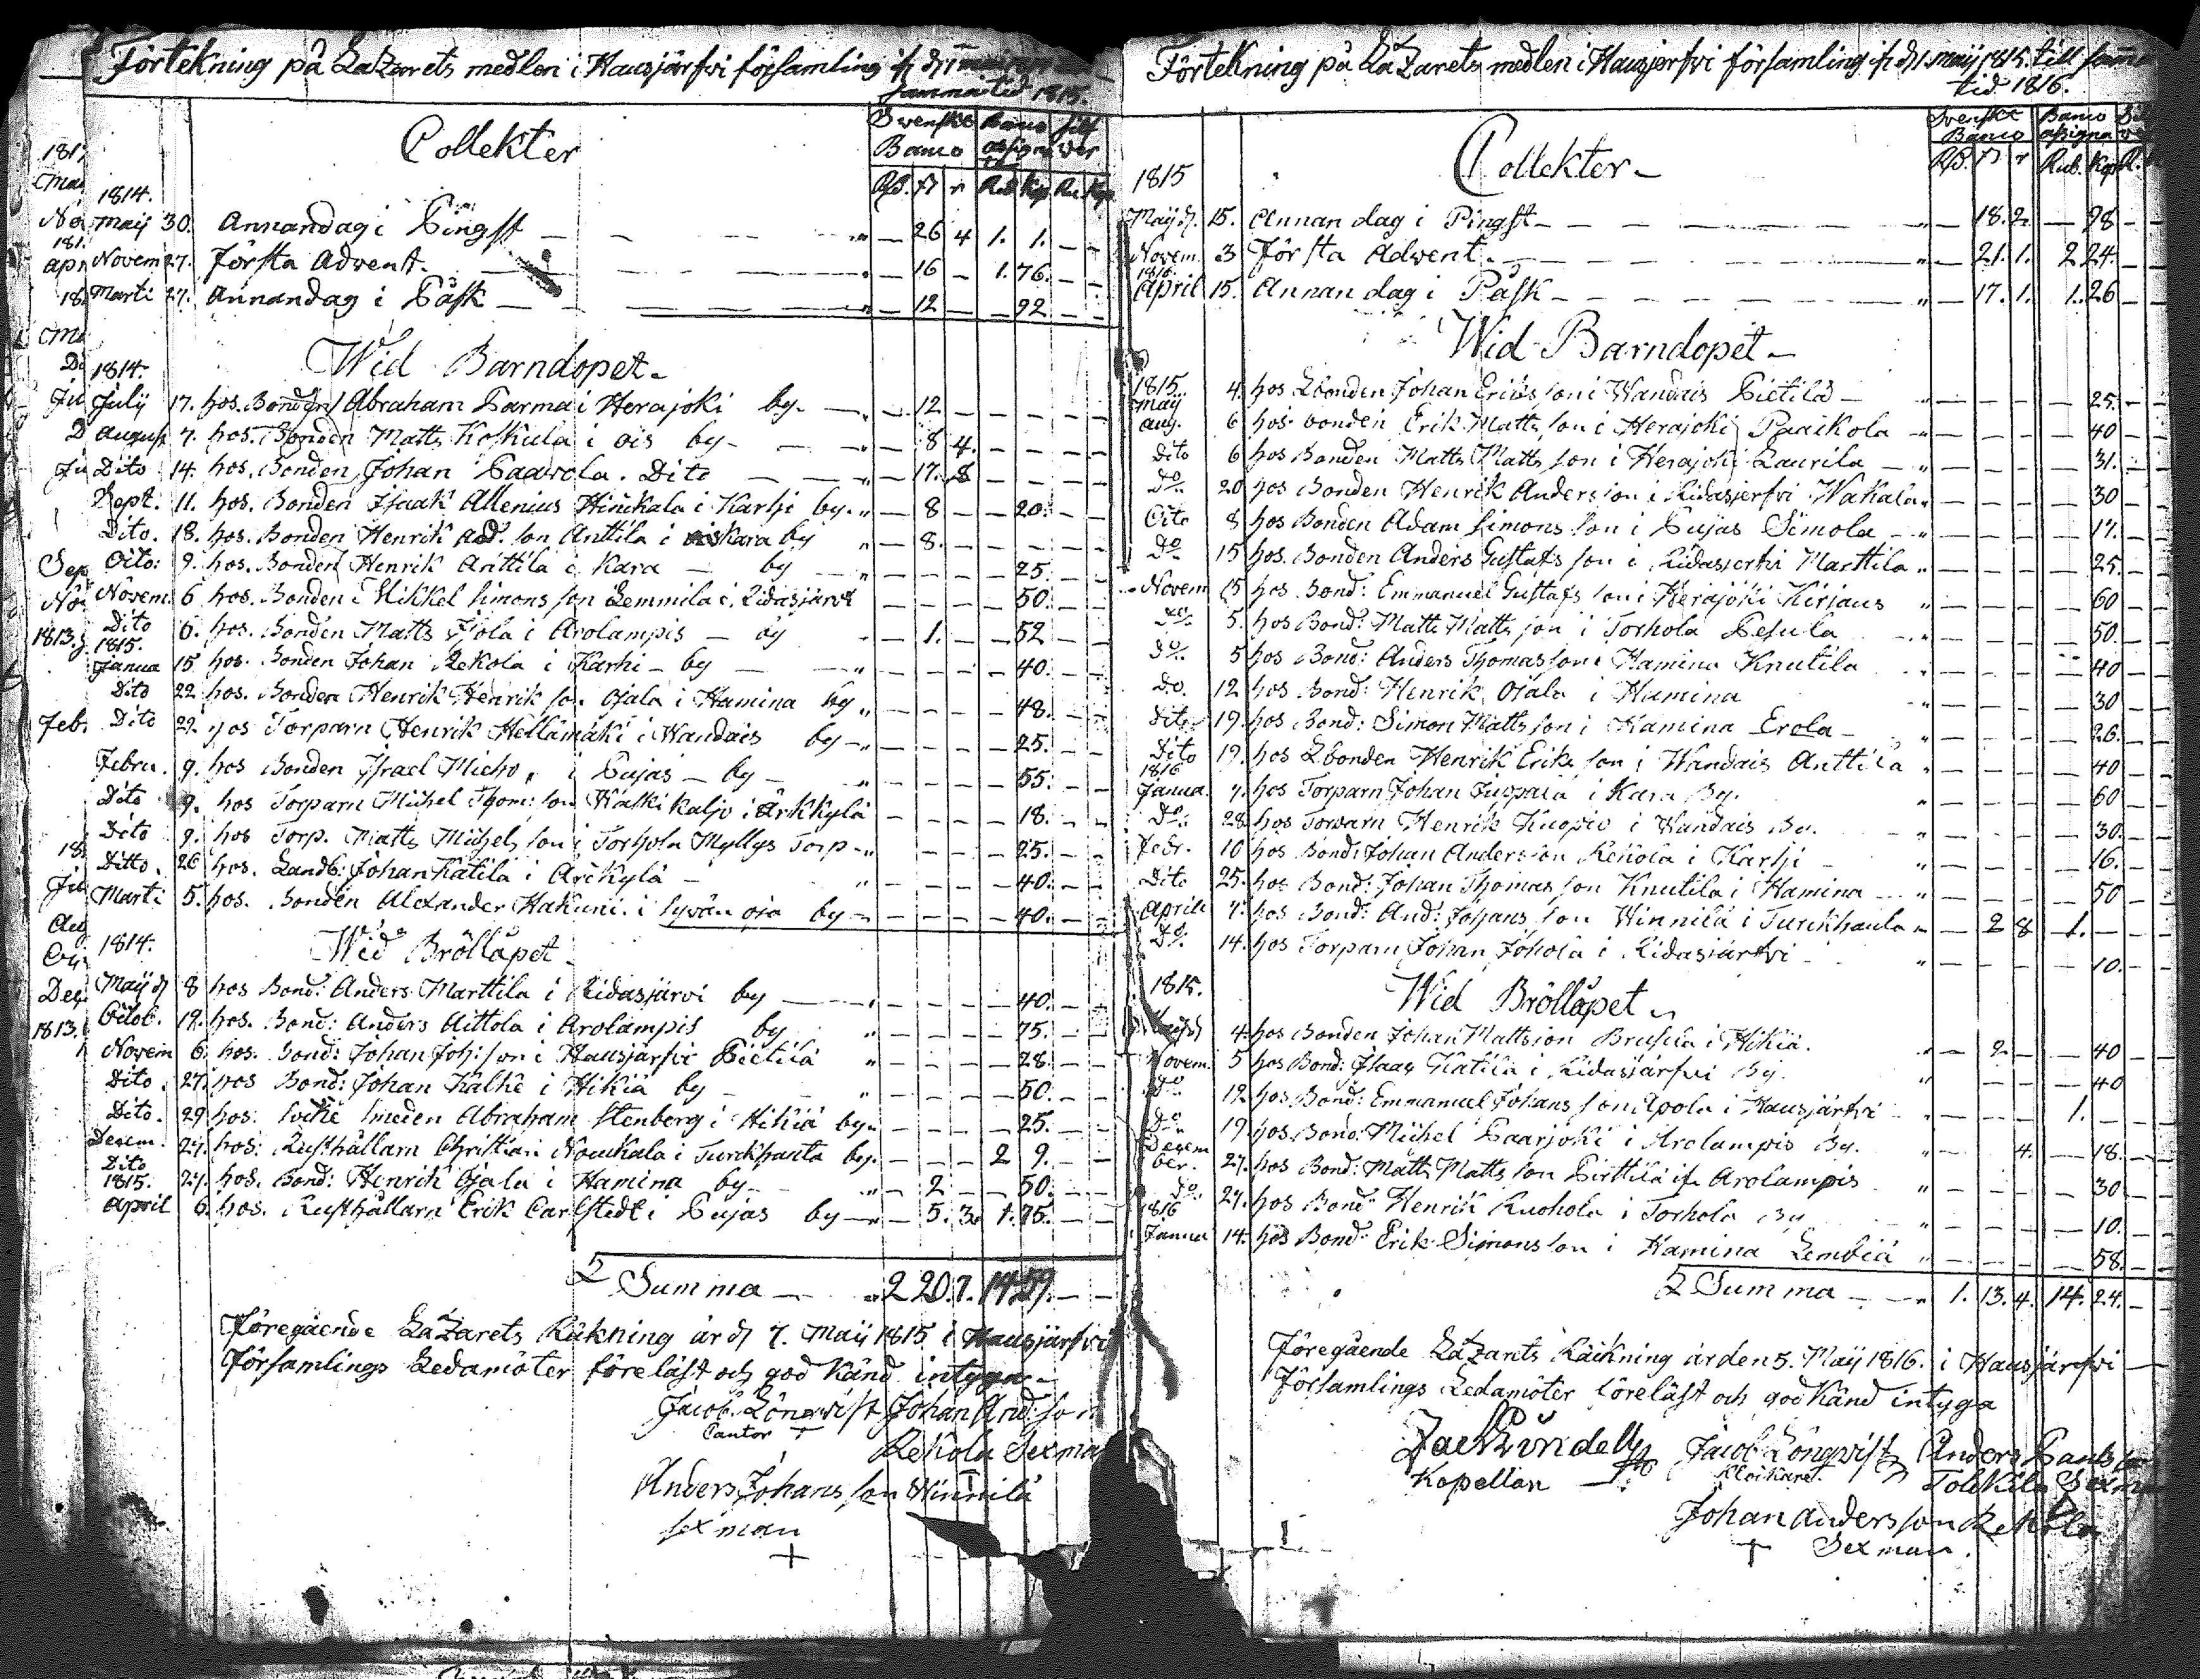 Förtekning på LaZarets medlen i Hausjärfvi församling if d. 1
samma tid 1815.
Collekter
Svenske Banco
Banco assigna
silf wer
RD. ß r Rub Kop Ru Kop
1814.
Maij 30. Annandag i Pingst — 26 4 1. 1. — —
Novem 27. Första Advent. — 16 — 1. 76. — —
Marti 27. Annandag i Påsk — 12 — — 92 — —
Wid Barndopet.
1814.
July 17. hos. Bonden Abraham Parma i Herajoki by. — 12 — — — — —
August 7. hos. Bonden Matts Koskula i ois by — 8 4. — — — —
Dito 14. hos. Bonden Johan Paavola. Dito — 17. 8 — — — —
Sept. 11. hos. Bonden Isaak Allenius Hinkala i Karhi by. — 8 — — 20. — —
Dito. 18. hos. Bonden Henrik And. son Anttila i Kara by — 8. — — — — —
Octo: 9. hos. Bonden Henrik Anttila i Kara — by — — — — 25. — —
Novem. 6 hos. Bonden Mikkel Simons son Lemmila i Ridasjärvi — — — — 50. — —
Dito 6. hos. Bonden Matts Ojola i Arolampis — by — 1. — — 52 — —
1815.
Janua 15 hos. Bonden Johan Rekola i Karhi — by — — — — 40. — —
Dito 22 hos. Bonden Henrik Henrik son Ojala i Hamina by — — — — 48. — —
Dito 22. hos Torparn Henrik Hellamäki i Wandais by — — — — 25. — —
Febru. 9. hos Bonden Israel Micho i Pujas — by — — — — 55. — —
Dito 9. hos Torparn Michel Thom: son Kalki kaljo i Arkkylä — — — — 18. — —
Dito 9. hos Torp. Matts Michels son i Torhola Myllys Torp — — — — 25. — —
Ditto. 26 hos. Landb: Johan Katila i Arikylä — — — — 40. — —
Marti 5. hos. Bonden Alexander Hakuni i syvän oja by — — — — 40. — —
1814.
Wid Bröllåpet
Maij d 8 hos Bond: Anders Marttila i Ridasjärvi by — — — — 40. — —
Octob. 19. hos. Bond: Anders Aittola i Arolampis by — — — — 75. — —
Novem 6. hos. Bond: Johan Joh: son i Hausjärfvi Pietilä — — — — 28. — —
Dito. 27. hos Bond: Johan Kalke i Hikiä by — — — — 50. — —
Dito. 29 hos. Sokne smeden Abraham Stenberg i Hikiä by. — — — — 25. — —
Decem. 27. hos. Rusthållarn Christian Noukala i Turckhauta by. — — — 2 9. — —
Dito 27. hos. Bond: Henrik Ojala i Hamina by — 2 — — 50. — —
1815.
April 6. hos. Rusthållarn Erik Carlstedt i Pujas by — 5. 3. 1. 75. — —
Summa — 2 20. 7. 14. 59. — —
Föregående LaZarets Räkning är d. 7. Maij 1815 i Hausjärfvi
Församlings Ledamöter föreläst och god känd intyga —
Jacob Lönqvist Johan And: son
Cantor Rekola Sexman
Anders Johans son Winnilä
sexman
+
Förtekning på LaZarets medlen i Hausjerfvi församling if d. 1. maij 1815. till samma
tid 1816.
Collekter —
Svenske Banco
Banco assigna
RD. ß r Rub. Kop R.
1815
Maij d. 15. Annan dag i Pingst — 18. 2. — 98 — —
Novem. 3 Första Advent. — 21. 1. 2 24. — —
1816.
April 15. Annan dag i Påsk — 17. 1. 1. 26 — —
Wid Barndopet —
1815.
maij 4. hos Lbonden Johan Eriks son i Wandais Pietilä — — — — 25. — —
aug. 6 hos bonden Erik Matts son i Herajoki Paaikola — — — — 40 — —
Dito 6 hos Bonden Matts Matts son i Herajoki Laurila — — — — 31. — —
Do 20 hos Bonden Henrik Anders son i Ridasjerfvi Wakala — — — — 30 — —
Octo 8 hos Bonden Adam Simons son i Pujas Simola — — — — 17. — —
Do 15 hos. Bonden Anders Gustafs son i Ridasjerfvi Marttila — — — — 25. — —
Novem 5 hos Bond: Emmanuel Gustafs son i Herajoki Kirjaus — — — — 60 — —
Do 5. hos Bond: Matts Matts son i Torhola Pesula — — — — 50. — —
Do 5 hos Bond: Anders Thomas son i Hamina Knutila — — — — 40 — —
Do. 12 hos Bond: Henrik Ojala i Hamina — — — — 30 — —
Dito 19. hos Bond: Simon Matts son i Hamina Erola — — — — 26. — —
Dito 19. hos Lbonden Henrik Eriks son i Wandais Anttila — — — — 40 — —
1816
Janua. 7. hos Torparn Johan i Kara By. — — — — 60 — —
Do. 28 hos Torparn Henrik Kuopio i Wandais By. — — — — 30. — —
Febr. 10 hos Bond: Johan Andersson Rekola i Karhi — — — — 16. — —
Dito 25. hos Bond: Johan Thomas son Knutila i Hamina — — — — 50 — —
Aprill 7. hos Bond: And: Johans son Winnilä i Turckhauta — 2 8 1. — — —
Do. 14. hos Torparn Johan Johola i Ridasjärfvi — — — — 10. — —
1815.
Wid Bröllåpet
4. hos Bonden Johan Mattsson Brusila i Hikiä. — 2 — — 40 — —
Novem. 5 hos Bond: Isaac Katila i Ridasjärfvi By. — — — — 40 — —
Do 12 hos Bond: Emmanuel Johans son Apola i Hausjärfvi — — — 1. — — —
Do 19 hos Bond: Michel Paarjoki i Arolampis By. — 4. — 18. — —
Decem ber. 27. hos Bond: Matts Matts son Pirttilä if. Arolampis — — — — 30 — —
Do 27. hos Bond: Henrik Ruohola i Torhola By — — — — 10. — —
1816
Janua 14. hos Bond: Erik Simons son i Hamina Lembiä — — — — 58. — —
Summa — 1. 13. 4. 14. 24. —
Föregående LaZarets Räkning är den 5. Maij 1816. i Hausjärfvi
Församlings Ledamöter föreläst och god känd intyga
Jac Lindell Jacob Lönqvist Anders Pauls son
Kapellan Klockaret. Tolkkila Sexman
Johan Andersson Rekola
+ Sexman.